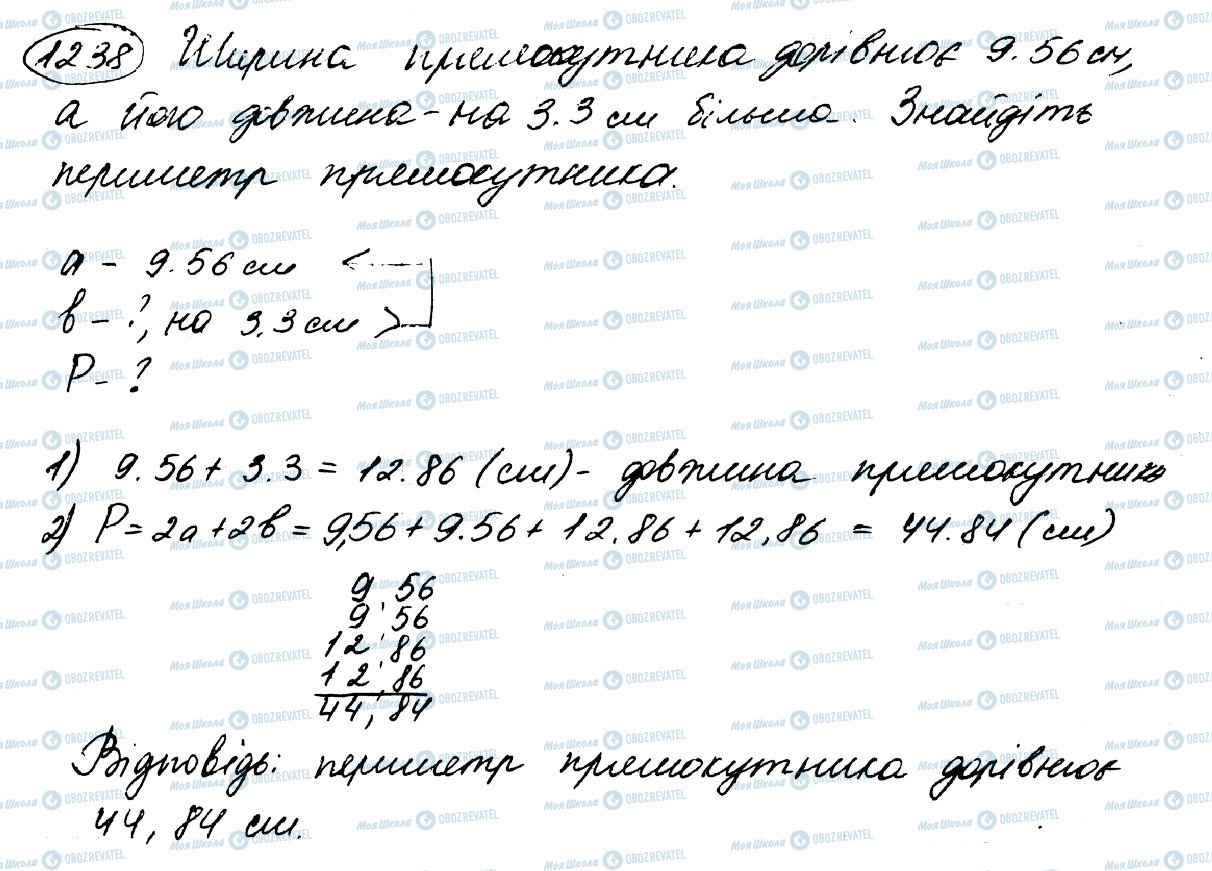 1238 Ширина прямокутника дорівнює 9.56 см,
а його довжина - на 3.3 см більша. Знайдіть
периметр прямокутника.
а - 9.56 см
в - ?, на 3.3 см >
Р - ?
1) 9.56 + 3.3 = 12.86 (см) - довжина прямокутника
2) Р = 2а + 2в = 9,56 + 9.56 + 12.86 + 12,86 = 44.84 (см)
9,56
9,56
12,86
12,86
44,84
Відповідь: периметр прямокутника дорівнює
44,84 см.
МояШкола OBOZREVATEL